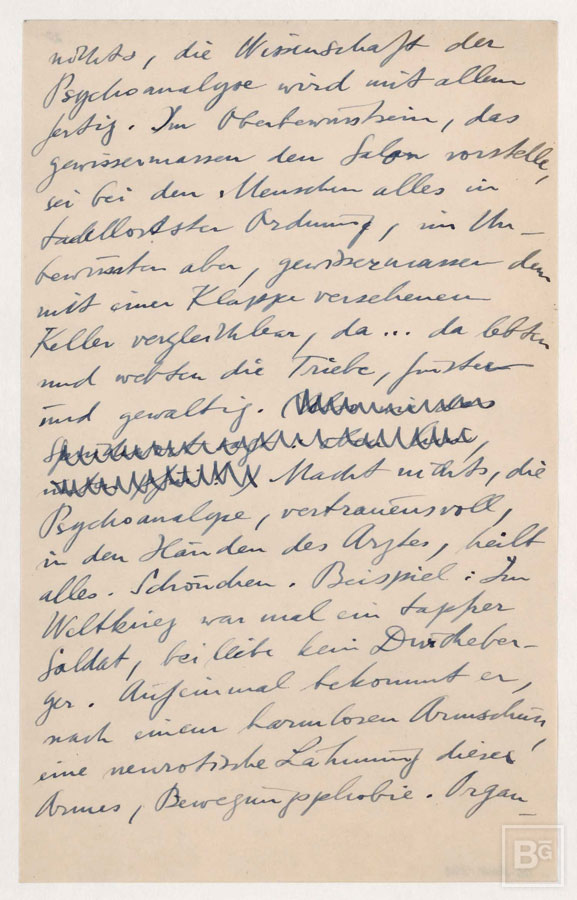 nichts, die Wissenschaft der
Psychoanalyse wird mit allem
fertig. Im Oberbewusstsein, das
gewissermassen den Salon vorstelle,
sei bei den Menschen alles in
tadellosster Ordnung, im Un-
bewussten aber, gewissermassen dem
mit einer Klappe versehenen
Keller vergleichbar, da ... da lebten
und webten die Triebe, finster
und gewaltig.
Macht nichts, die
Psychoanalyse, vertrauensvoll,
in den Händen des Arztes, heilt
alles. Schönchen. Beispiel: Im
Weltkrieg war mal ein tapfrer
Soldat, bei leibe kein Drückeber-
ger. Aufeinmal bekommt er,
nach einem harmlosen Armschuss,
eine neurotische Lähmung dieses
Armes, Bewegungsphobie. Organ-
BG